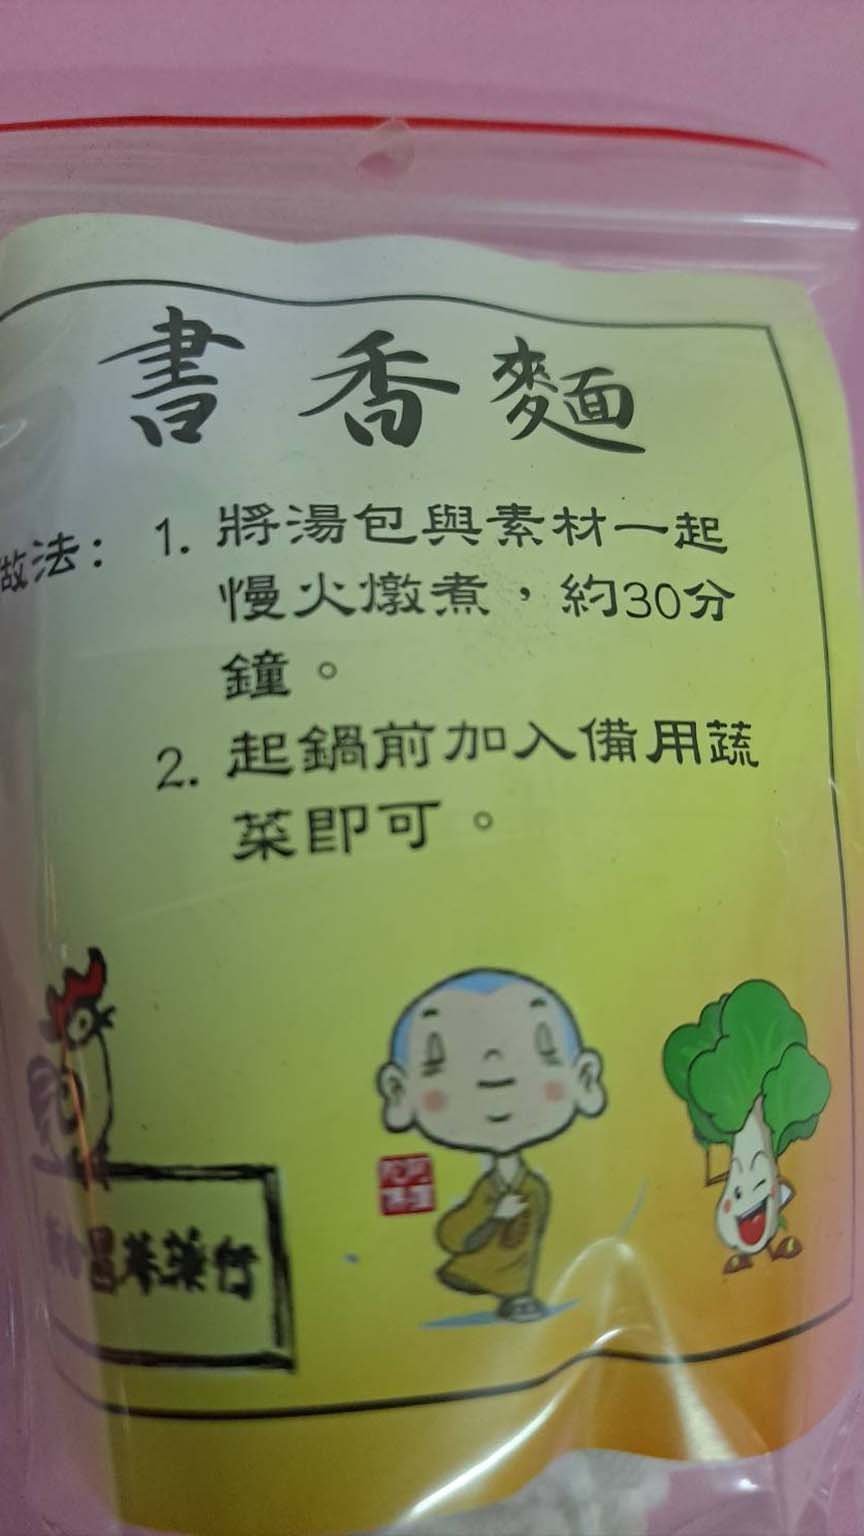 書香麵
做法：1. 將湯包與素材一起
慢火燉煮，約30分
鐘。
2. 起鍋前加入備用蔬
菜即可。
阿彌
陀佛